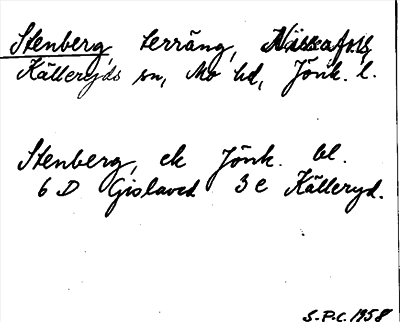 Stenberg, terräng, Nissafors,
Källeryds sn, Mo hd, Jönk. l.
Stenberg, ek Jönk. bl.
6 D Gislaved 3 e Källeryd.
S.P.C. 1958